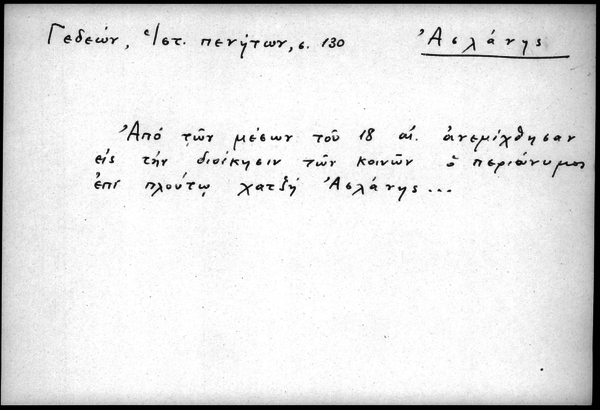 Γεδεών, Ἱστ. πενήτων, σ. 130
Ἀσλάνης
Ἀπό τῶν μέσων τοῦ 18 αἰ. ἀνεμίχθησαν
εἰς τήν διοίκησιν τῶν κοινῶν ὁ περιώνυμος
ἐπί πλούτῳ χατζῆ Ἀσλάνης...